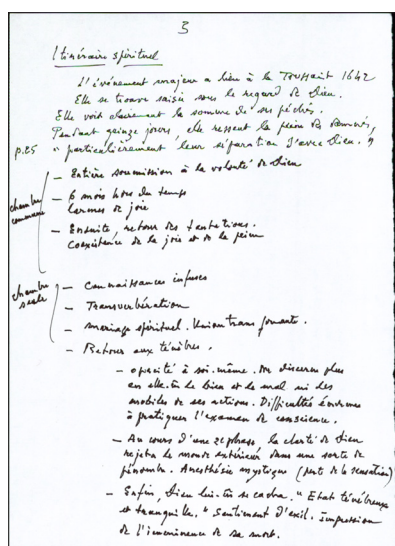 3
Itinéraire spirituel
L'événement majeur a lieu à la Toussaint 1642
Elle se trouve saisie sous le regard de Dieu.
Elle voit clairement la somme de ses péchés.
Pendant quinze jours, elle ressent la peine des damnés,
p.25 "particulièrement leur séparation d'avec Dieu."
chambre commune
— Entière soumission à la volonté de Dieu
— 6 mois hors du temps
larmes de joie
— Ensuite, retour des tentations.
Coexistence de la joie et de la peine
chambre seule
— Connaissances infuses
— Transverbération
— Mariage spirituel. Union transformante.
— Retour aux ténèbres.
— opacité à soi-même. Ne discerne plus
en elle-m̂ le bien et le mal ni des
mobiles de ses actions. Difficultés énormes
à pratiquer l'examen de conscience.
— Au cours d'une 2e phase la clarté de Dieu
rejeta le monde extérieur dans une sorte de
pénombre. Anesthésie mystique (perte de la sensation)
— Enfin, Dieu lui-m̂ se cacha. "Etat ténébreux
et tranquille." Sentiment d'exil. Impression
de l'imminence de sa mort.